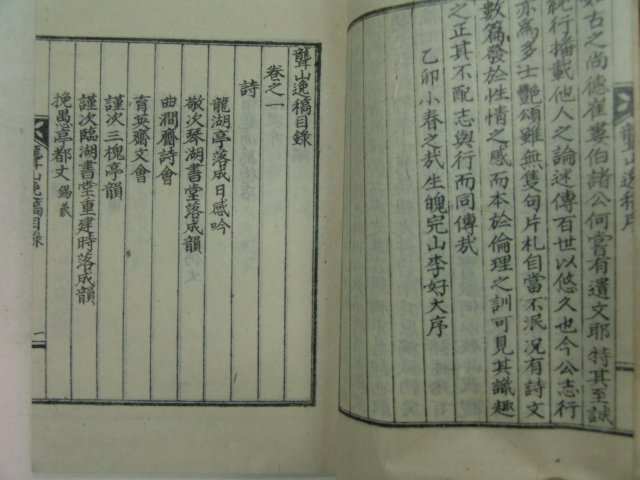 如古之尚德崔婁伯諸公何嘗有遺文耶特其至誠
純行播載他人之論述傳百世以悠久也今公志行
亦爲多士艶頌雖無隻句片札自當不泯况有詩文
數篇發於性情之感而本於倫理之訓可見其識趣
之正其不配志與行而同傳哉
乙卯小春之哉生魄完山李好大序
聾山逸稿序
聾山逸稿目錄
卷之一
詩
龍湖亭落成日感吟
敬次琴湖書堂落成韻
曲澗齋詩會
育英齋文會
謹次三槐亭韻
謹次臨湖書堂重建時落成韻
挽愚亭都丈 錫羲
聾山逸稿目錄
一